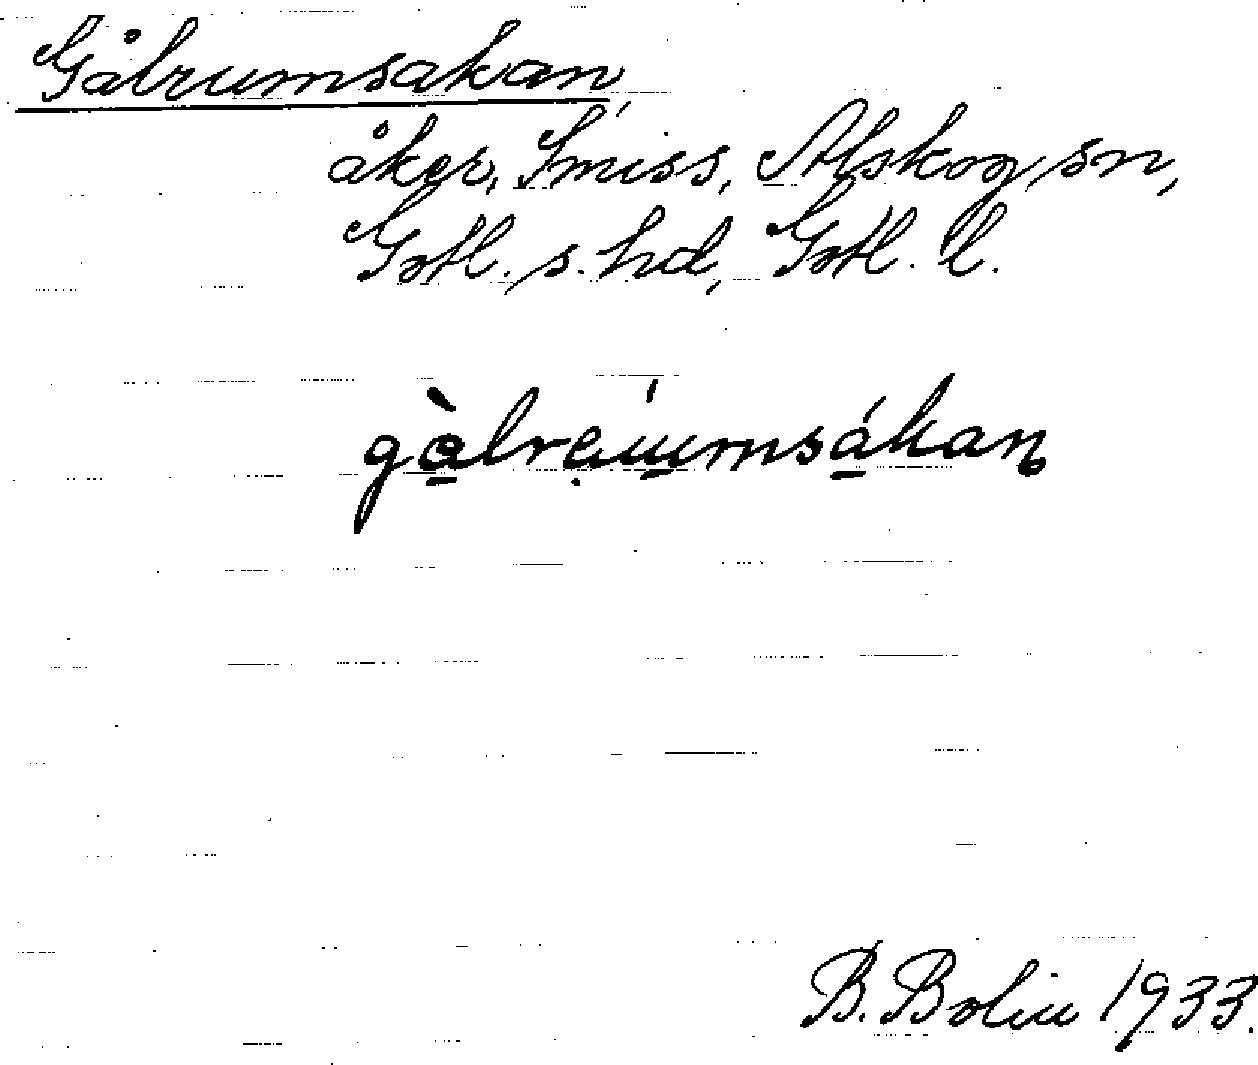 Gålrumsakan,
åker, Smiss, Alskog sn,
Gotl. s. hd, Gotl. l.
B. Bolin 1933.